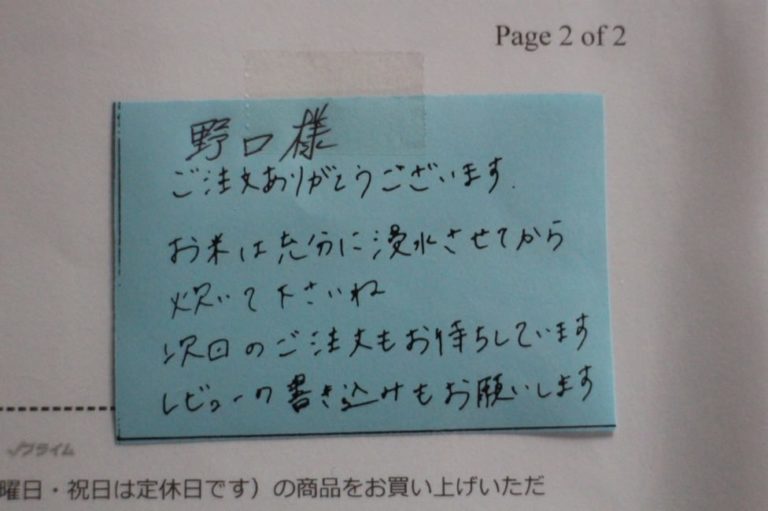 Page 2 of 2
野口様
ご注文ありがとうございます.
お米は充分に浸水させてから
炊いて下さいね
次回のご注文もお待ちしています
レビューの書き込みもお願いします
✓プライム
曜日・祝日は定休日です）の商品をお買い上げいただ